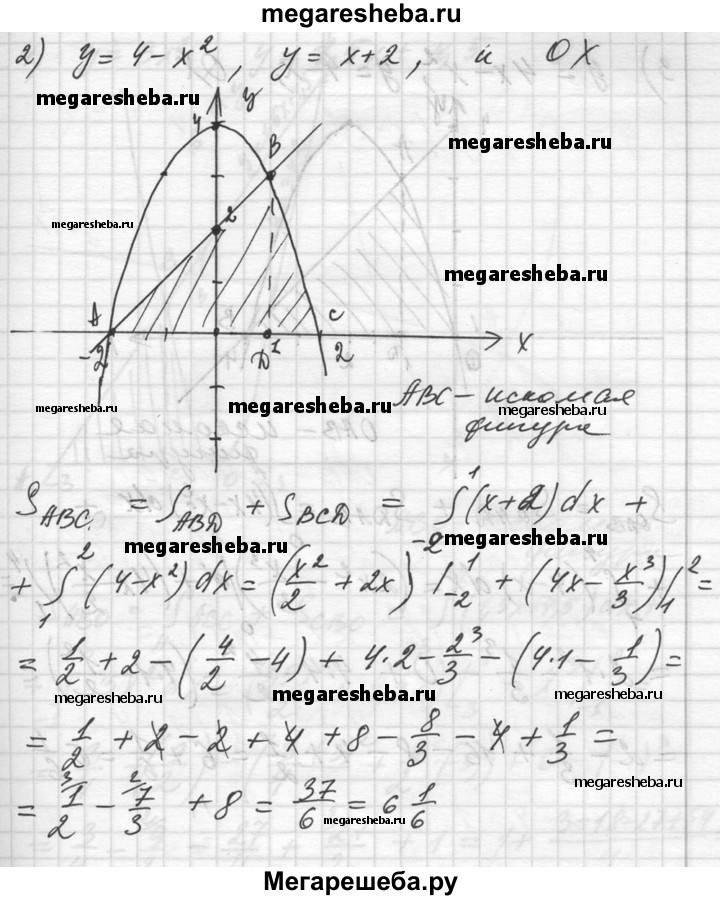 megaresheba.ru
2) y = 4 - x², y = x + 2, и OX
megaresheba.ru
y
4
B
megaresheba.ru
megaresheba.ru
2
megaresheba.ru
A
C
-2
D
1
2
x
megaresheba.ru
megaresheba.ru
ABC - искомая
megaresheba.ru
фигура
S_ABC = S_ABD + S_BCD = ∫_{-2}^{1} (x+2)dx +
megaresheba.ru
megaresheba.ru
+ ∫_1^2 (4-x²)dx = (x²/2 + 2x) |_{-2}^{1} + (4x - x³/3)|_1^2 =
= 1/2 + 2 - (4/2 - 4) + 4·2 - 2³/3 - (4·1 - 1/3) =
megaresheba.ru
megaresheba.ru
megaresheba.ru
= 1/2 + 2 - 2 + 4 + 8 - 8/3 - 4 + 1/3 =
megaresheba.ru
= ³⁄1/2 - ²⁄7/3 + 8 = 37/6 = 6 1/6
megaresheba.ru
megaresheba.ru
Мегарешеба.ру